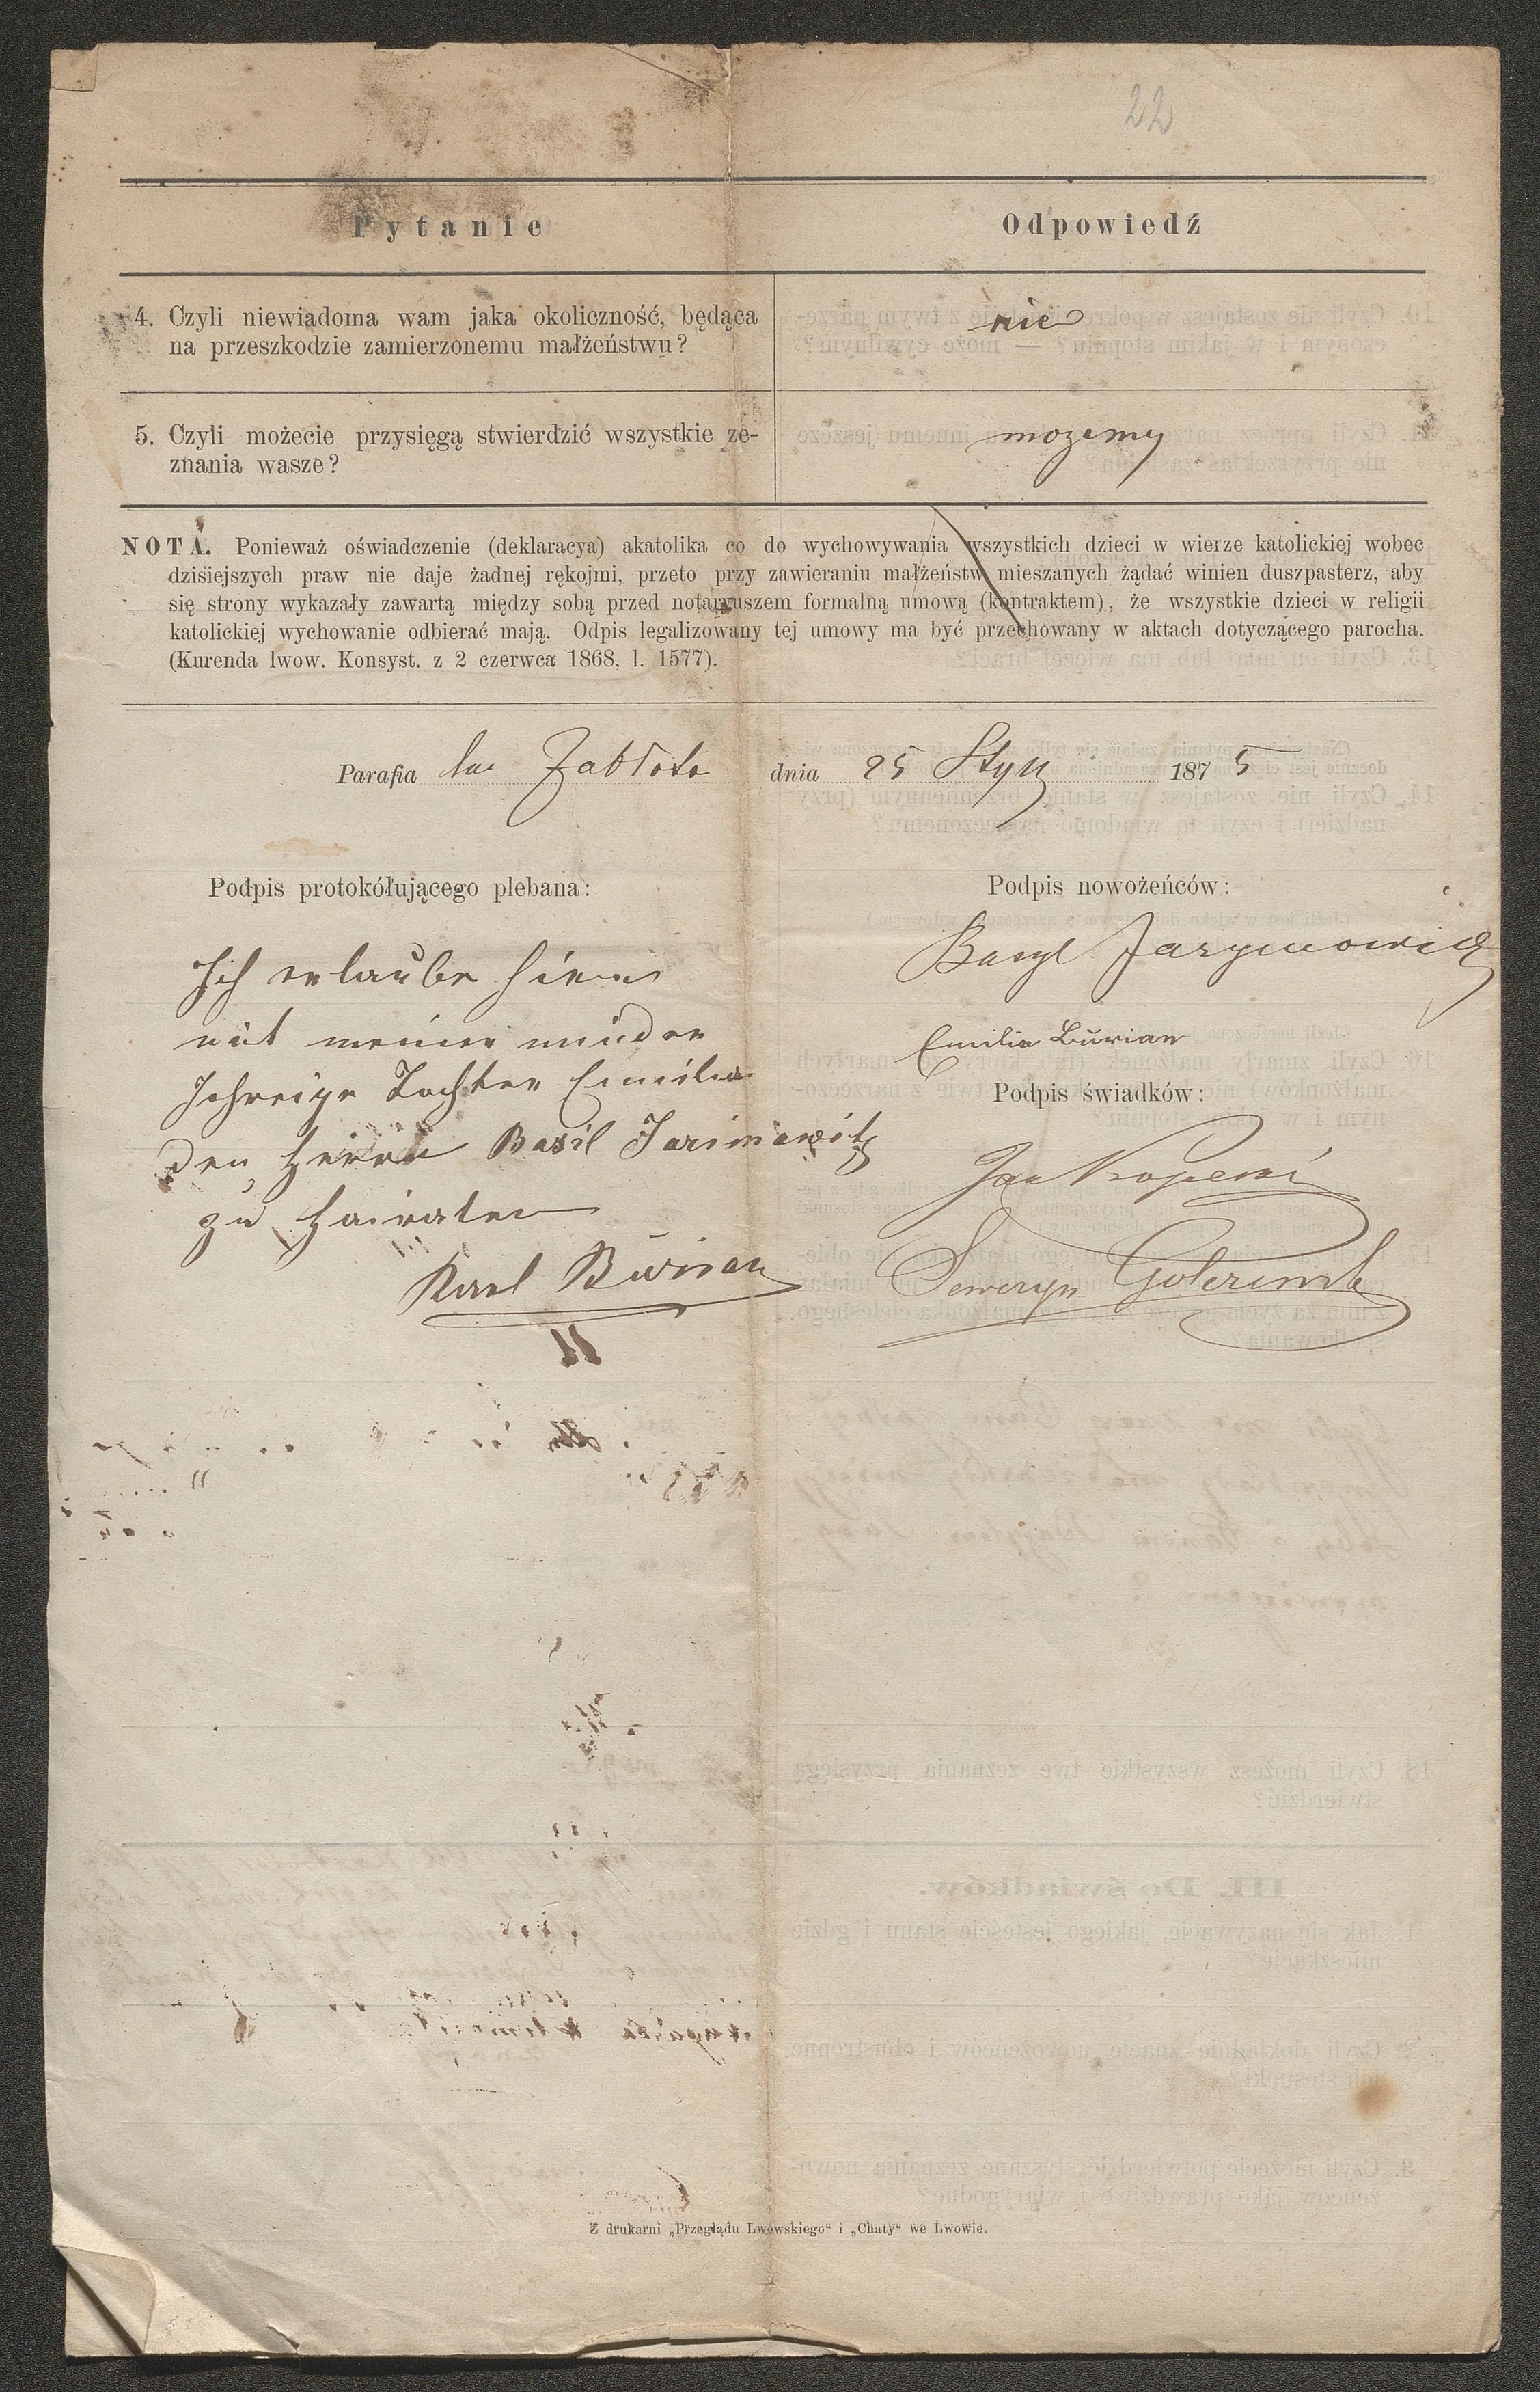 22
Pytanie
Odpowiedź
4. Czyli niewiadoma wam jaka okoliczność, będąca
na przeszkodzie zamierzonemu małżeństwu?
nie
5. Czyli możecie przysięgą stwierdzić wszystkie ze-
znania wasze?
mozemy
NOTA. Ponieważ oświadczenie (deklaracya) akatolika co do wychowywania wszystkich dzieci w wierze katolickiej wobec
dzisiejszych praw nie daje żadnej rękojmi, przeto przy zawieraniu małżeństw mieszanych żądać winien duszpasterz, aby
się strony wykazały zawartą między sobą przed notaryuszem formalną umową (kontraktem), że wszystkie dzieci w religii
katolickiej wychowanie odbierać mają. Odpis legalizowany tej umowy ma być przechowany w aktach dotyczącego parocha.
(Kurenda lwow. Konsyst. z 2 czerwca 1868, l. 1577).
Parafia Zabłoto dnia 25 Stycz 1875
Podpis protokółującego plebana:
Podpis nowożeńców:
Basyl Jarymowicz
Emilia Burian
Ich erlaube hier
mit meiner minder
jehreige Tochter Emilia
den Herrn Basil Jarimowitz
zu hairaten
Karl Burian
Podpis świadków:
Jan
Seweryn
Z drukarni „Przeglądu Lwowskiego" i „Chaty" we Lwowie.